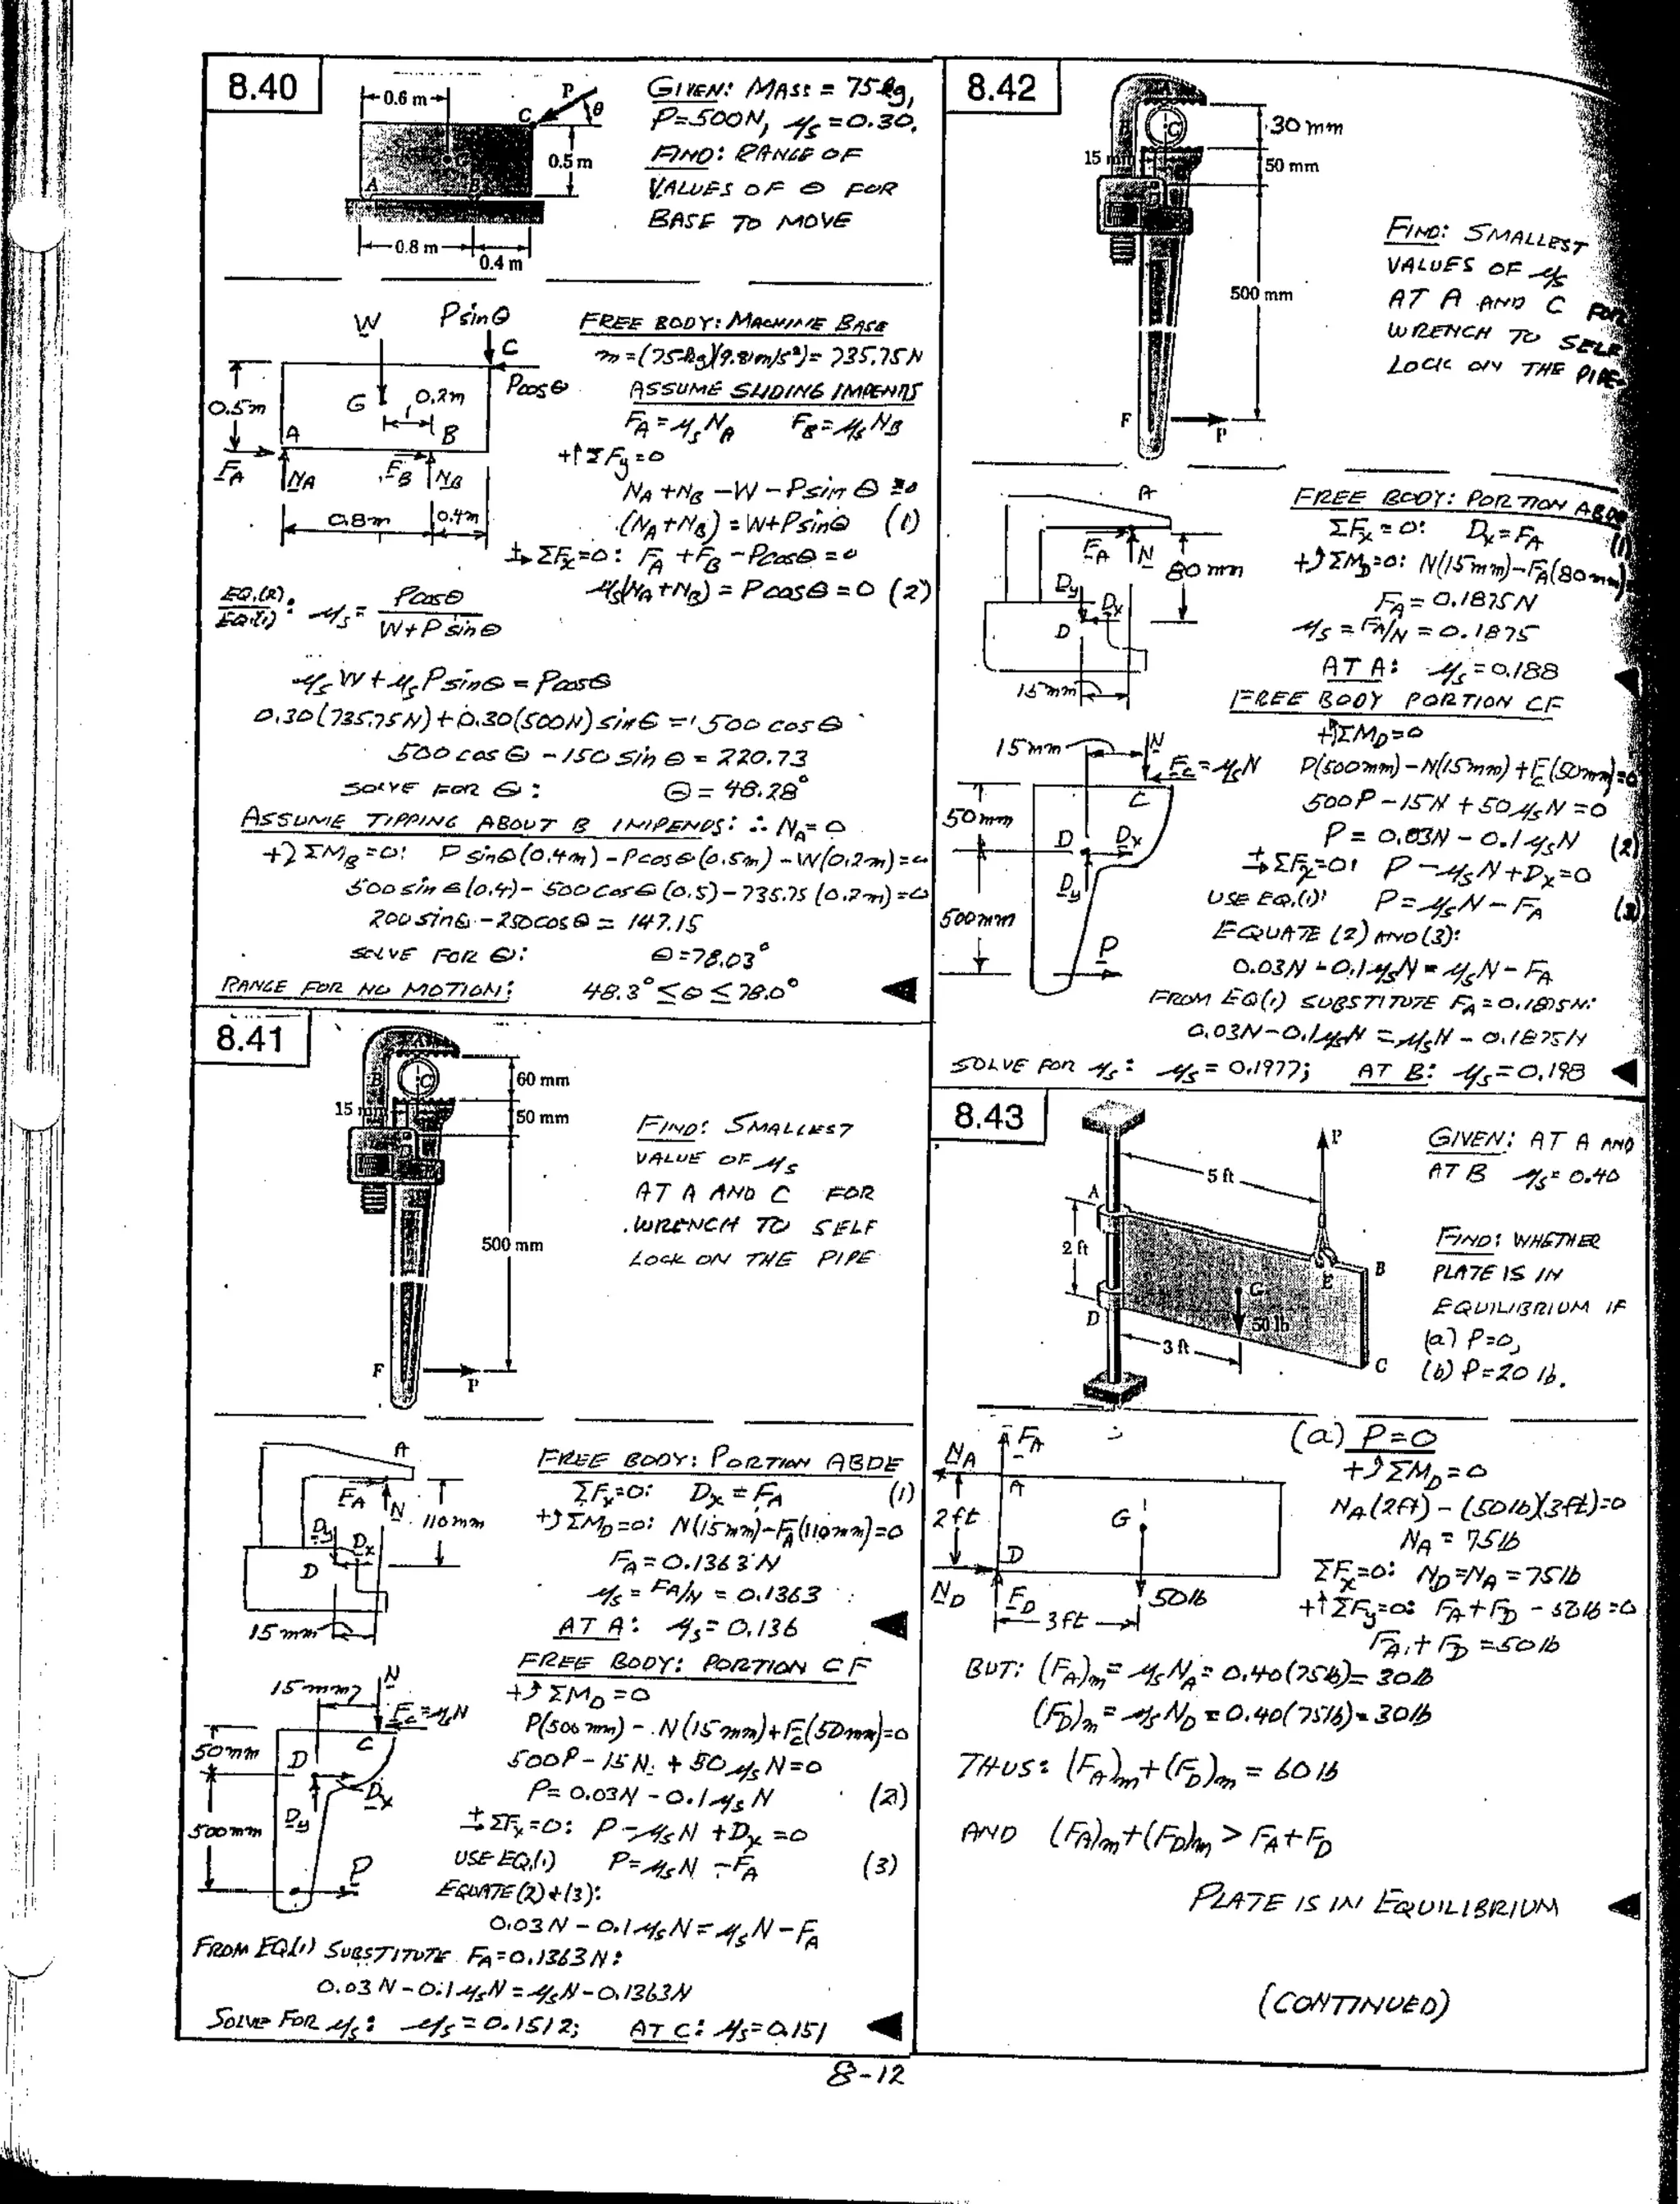 8.40
0.6 m
P
θ
C
G
0.5 m
A
B
0.8 m
0.4 m
GIVEN: MASS = 75 kg,
P=500N, μs = 0.30.
FIND: RANGE OF
VALUES OF θ FOR
BASE TO MOVE
W
Psinθ
C
Pcosθ
0.5m
G
0.2m
A
B
FA
NA
FB
NB
0.8m
0.4m
FREE BODY: MACHINE BASE
m = (75kg)(9.81m/s²) = 735.75 N
ASSUME SLIDING IMPENDS
FA = μs NA FB = μs NB
+↑ΣFy = 0
NA + NB - W - Psin θ = 0
(NA + NB) = W + Psinθ (1)
+→ ΣFx = 0: FA + FB - Pcosθ = 0
μs(NA + NB) = P cosθ = 0 (2)
EQ.(2)/EQ.(1): μs = Pcosθ / W + P sinθ
μs W + μs P sinθ = Pcosθ
0.30(735.75N) + 0.30(500N) sinθ = 500 cosθ
500 cosθ - 150 sin θ = 220.73
SOLVE FOR θ: θ = 48.28°
ASSUME TIPPING ABOUT B IMPENDS: ∴ NA = 0
+⤸ΣMB = 0: P sinθ(0.4m) - Pcosθ(0.5m) - W(0.2m) = 0
500 sinθ(0.4) - 500 cosθ(0.5) - 735.75(0.2m) = 0
200 sinθ - 250 cosθ = 147.15
SOLVE FOR θ: θ = 78.03°
RANGE FOR NO MOTION: 48.3° ≤ θ ≤ 78.0° ◀
8.41
A
B
C
60 mm
15 mm
50 mm
500 mm
F
P
FIND: SMALLEST
VALUE OF μs
AT A AND C FOR
WRENCH TO SELF
LOCK ON THE PIPE
A
FA
N
110mm
Dy
Dx
D
15mm
FREE BODY: PORTION ABDE
ΣFx=0: Dx = FA (1)
+⤴ΣMD=0: N(15mm)-FA(110mm)=0
FA = 0.1363 N
μs = FA/N = 0.1363
AT A: μs = 0.136 ◀
FREE BODY: PORTION CF
+⤴ΣMD=0
P(500 mm) - N(15 mm) + FC(50mm)=0
500P - 15N + 50μsN = 0
P = 0.03N - 0.1μsN (2)
+→ΣFx=0: P - μsN + Dx = 0
USE EQ.(1) P = μsN - FA (3)
EQUATE (2) + (3):
0.03N - 0.1μsN = μsN - FA
15mm
N
FC = μsN
50mm
D
C
Dx
Dy
500mm
P
FROM EQ(1) SUBSTITUTE FA = 0.1363N:
0.03 N - 0.1μsN = μsN - 0.1363N
SOLVE FOR μs: μs = 0.1512; AT C: μs = 0.151 ◀
8.42
A
B
C
30 mm
15 mm
50 mm
500 mm
F
P
FIND: SMALLEST
VALUES OF μs
AT A AND C FOR
WRENCH TO SELF
LOCK ON THE PIPE
A
FA
N
80 mm
Dy
Dx
D
15mm
FREE BODY: PORTION ABDE
ΣFx = 0: Dx = FA (1)
+⤴ΣMD=0: N(15mm)-FA(80mm)
FA = 0.1875N
μs = FA/N = 0.1875
AT A: μs = 0.188 ◀
FREE BODY PORTION CF
+⤴ΣMD=0
P(500mm) - N(15mm) + FC(50mm)=0
500P - 15N + 50μsN = 0
P = 0.03N - 0.1μsN (2)
+→ΣFx=0: P - μsN + Dx = 0
USE EQ.(1): P = μsN - FA (3)
EQUATE (2) AND (3):
0.03N - 0.1μsN = μsN - FA
15mm
N
FC = μsN
50mm
C
D
Dx
Dy
500mm
P
FROM EQ(1) SUBSTITUTE FA = 0.1875N:
0.03N - 0.1μsN = μsN - 0.1875N
SOLVE FOR μs: μs = 0.1977; AT B: μs = 0.198 ◀
8.43
P
5 ft
A
2 ft
B
E
G
50 lb
D
3 ft
C
GIVEN: AT A AND
AT B μs = 0.40
FIND: WHETHER
PLATE IS IN
EQUILIBRIUM IF
(a) P=0,
(b) P=20 lb.
NA
FA
A
2ft
G
D
ND
FD
3ft
50lb
(a) P=0
+⤴ΣMD=0
NA(2ft) - (50lb)(3ft)=0
NA = 75lb
ΣFx=0: ND=NA=75lb
+↑ΣFy=0: FA+FD - 50lb=0
FA + FD = 50lb
BUT: (FA)m = μsNA = 0.40(75lb) = 30lb
(FD)m = μsND = 0.40(75lb) = 30lb
THUS: (FA)m + (FD)m = 60 lb
AND (FA)m + (FD)m > FA + FD
PLATE IS IN EQUILIBRIUM ◀
(CONTINUED)
8-12